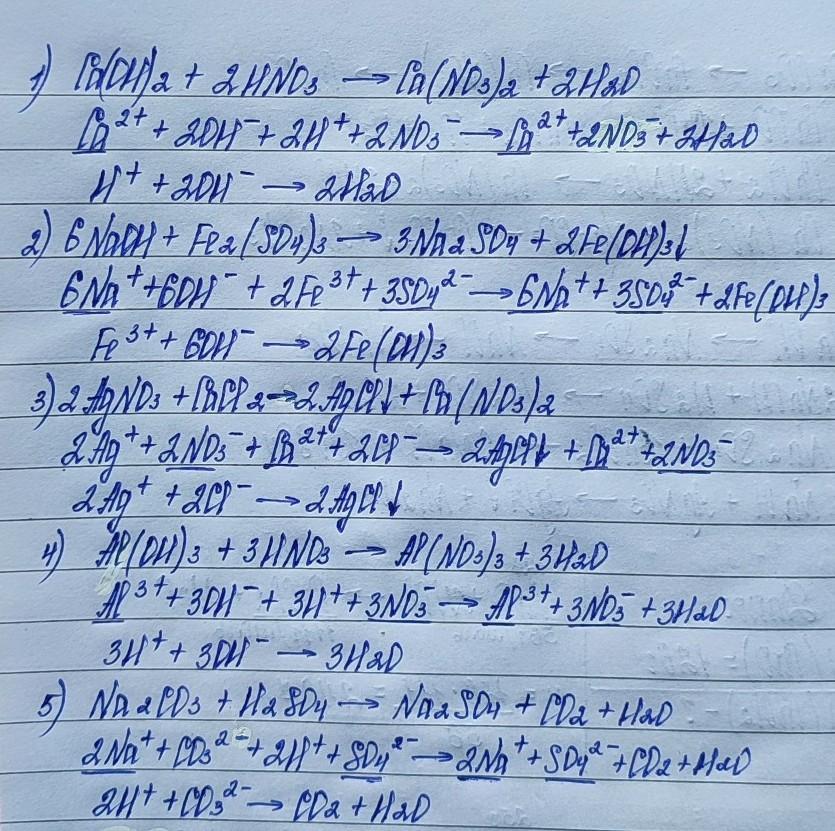 1) Ca(OH)2 + 2HNO3 → Ca(NO3)2 + 2H2O
Ca2+ + 2OH- + 2H+ + 2NO3- → Ca2+ + 2NO3- + 2H2O
H+ + 2OH- → 2H2O
2) 6NaOH + Fe2(SO4)3 → 3Na2SO4 + 2Fe(OH)3↓
6Na+ + 6OH- + 2Fe3+ + 3SO42- → 6Na+ + 3SO42- + 2Fe(OH)3
Fe3+ + 6OH- → 2Fe(OH)3
3) 2AgNO3 + CaCl2 → 2AgCl↓ + Ca(NO3)2
2Ag+ + 2NO3- + Ca2+ + 2Cl- → 2AgCl↓ + Ca2+ + 2NO3-
2Ag+ + 2Cl- → 2AgCl↓
4) Al(OH)3 + 3HNO3 → Al(NO3)3 + 3H2O
Al3+ + 3OH- + 3H+ + 3NO3- → Al3+ + 3NO3- + 3H2O
3H+ + 3OH- → 3H2O
5) Na2CO3 + H2SO4 → Na2SO4 + CO2 + H2O
2Na+ + CO32- + 2H+ + SO42- → 2Na+ + SO42- + CO2 + H2O
2H+ + CO32- → CO2 + H2O